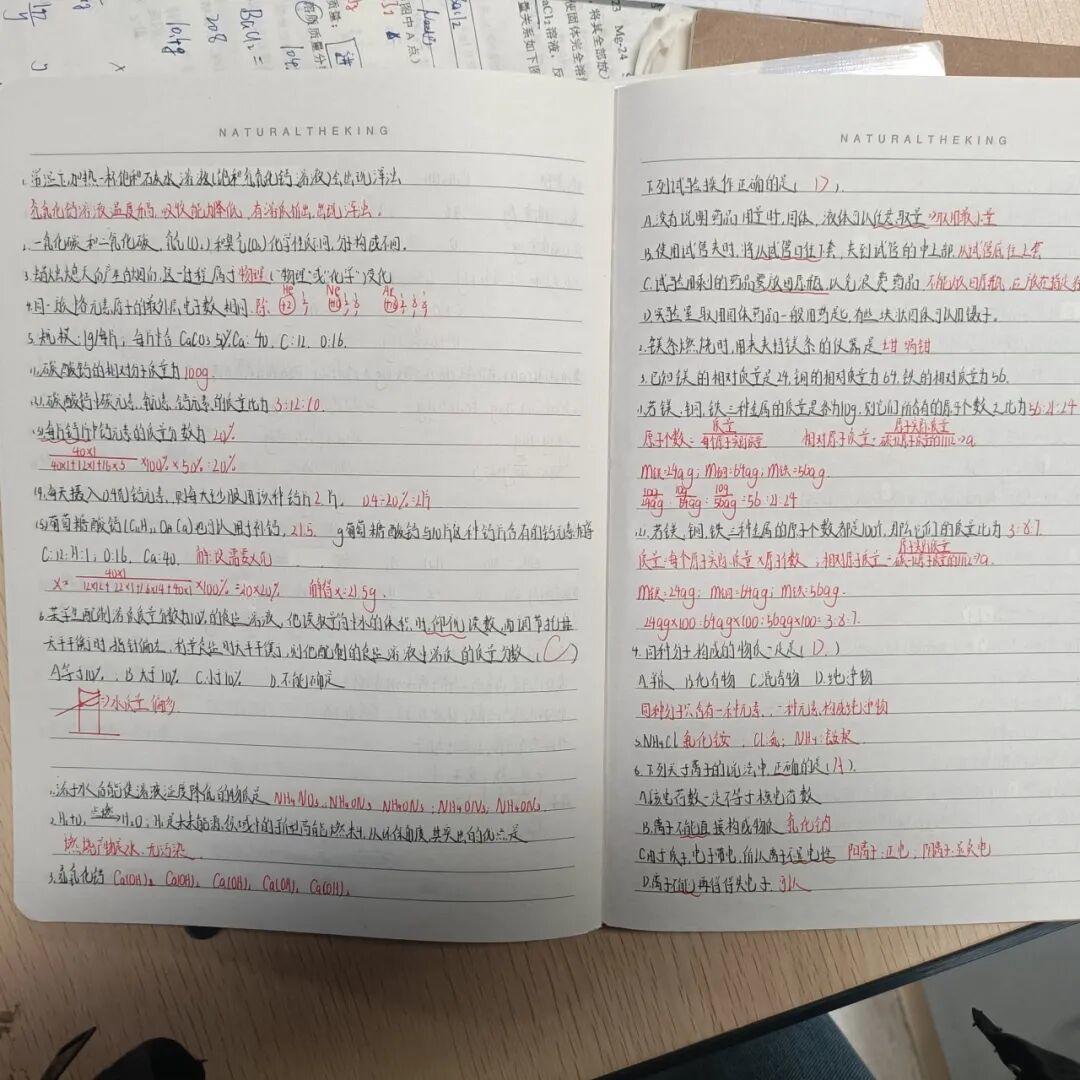 23 Mg-24
将其全部放入
使固体完全溶
BaCl₂溶液,反
量关系如下图
图中A点)
质量:
溶质质量分
BaCl₂ =
208
10.4g
NATURALTHEKING
1.常温下,加热一杯饱和石灰水溶液(饱和氢氧化钙溶液)会出现浑浊
氢氧化钙溶液温度升高,吸收能力降低,有溶质析出,出现浑浊。
2.一氧化碳和二氧化碳,氧气(O₂)和臭氧(O₃)化学性质不同,分子构成不同。
产生的烟雨,这一过程属于物理("物理"或"化学")变化
4.同一族各元素原子的最外层电子数相同.除. He +2 2 Ne +10 2 8 Ar +18 2 8 8
5.规格:1g/每片,每片含CaCO3 50% Ca:40. C:12. O:16.
(1)碳酸钙的相对分子质量为100g.
(2)碳酸钙中碳元素、氧元素、钙元素的质量比为3:12:10.
(3)每片钙片中钙元素的质量分数为20%
40×1/40×1+12×1+16×3 ×100%×50%=20%
(4)每天摄入0.4g钙元素,则每天至少服用该种钙片2片. 0.4÷20%=2片
(5)葡萄糖酸钙(C₁₂H₂₂O₁₄Ca)也可以用于补钙,21.5 g葡萄糖酸钙与10片这种钙片含有的钙元素相等
C:12. H:1; O:16. Ca:40. 解:设需要x克
x× 40×1/12×12+22×1+16×14+40×1 ×100%=10×20% 解得x=21.5g.
6.某学生配制溶质质量分数为10%的食盐溶液,他读取量筒中水的体积时,仰视读数,而调节托盘
天平平衡时,指针偏左,称量食盐时天平平衡,则他配制的食盐溶液中溶质的质量分数(C)
A.等于10% B.大于10% C.小于10% D.不能确定
⇒水质量偏多
1.溶于水后能使溶液温度降低的物质是 NH4NO3. NH4ON3 NH4ON3; NH4ON3; NH4ON3
2.H₂+O₂ 点燃→H₂O;H₂是未来能源
燃烧产物是水.无污染.
3.氢氧化钙 Ca(OH)₂ Ca(OH)₂ Ca(OH)₂ Ca(OH)₂ Ca(OH)₂
NATURALTHEKING
下列试验操作正确的是(D).
A.没有说明药品用量时,固体、液体可以任意取量⇒取用最小量
B.使用试管夹时,将从试管口往下套,夹到试管的中上部.从试管底往上套
C.试验用剩的药品要放回原瓶,以免浪费药品.不能放回原瓶,应放在指定容
D.实验室取用固体药品一般用药匙,有些块状固体可以用镊子.
2.镁条燃烧时,用来夹持镁条的仪器是坩埚钳
3.已知镁的相对质量是24,铜的相对质量为64,铁的相对质量为56.
(1)若镁、铜、铁三种金属的质量是各为10g.则它们所含有的原子个数之比为56:21:24
原子个数=质量/每个原子实际质量 相对原子质量=原子实际质量/碳12原子质量的1/12⇒a.
m镁=24ag; m铜=64ag; m铁=56ag.
10g/24ag : 10g/64ag : 10g/56ag =56:21:24
(2)若镁、铜、铁三种金属的原子个数都是100个,那么它们的质量比为3:8:7.
质量=每个原子实际质量×原子个数;相对原子质量=原子实际质量/碳12原子质量的1/12⇒a.
m镁=24ag; m铜=64ag; m铁=56ag.
24ag×100:64ag×100:56ag×100=3:8:7.
4.同种分子构成的物质一定是(D)
A.单质 B.化合物 C.混合物 D.纯净物
同种分子只含有一种元素,一种元素构成纯净物
5.NH₄Cl氯化铵. Cl:氯; NH₄:铵根.
6.下列关于离子的说法中,正确的是(A).
A.核电荷数一定不等于核电荷数
B.离子不能直接构成物质 氯化钠
C.由于质子,电子带电,所以离子不显电性 阳离子:正电;阴离子:显负电
D.离子不能再得得失电子.可以